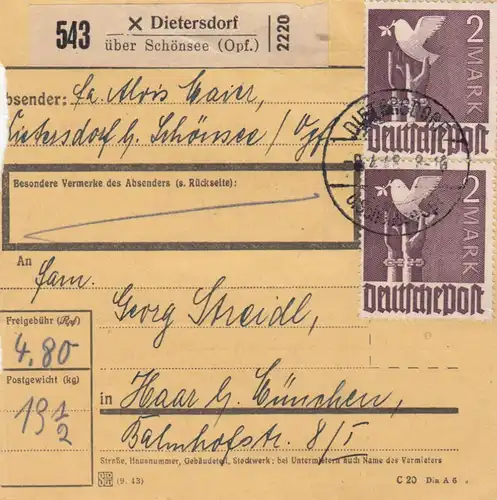 543
✕ Dietersdorf
über Schönsee (Opf.)
2220
Absender: Fa. Alois Maier,
Dietersdorf b. Schönsee / Opf
Besondere Vermerke des Absenders (s. Rückseite):
2 MARK
Deutsche Post
DIETERSDORF
8-16
2 MARK
Deutsche Post
An
Fam.
Georg Streidl,
Freigebühr (Rpf)
4.80
Postgewicht (kg)
19 1/2
in Haar b. München,
Bahnhofstr. 8/I
Straße, Hausnummer, Gebäudeteil, Stockwerk; bei Untermietern auch Name des Vermieters
(9. 43)
C 20 Din A 6